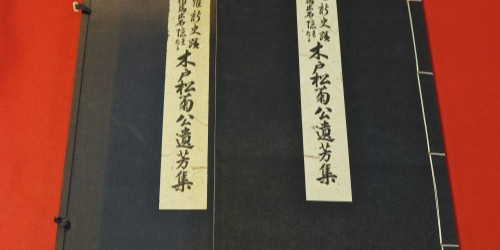 新史蹟
木戸松菊公遺芳集
維新史蹟
木戸松菊公遺芳集